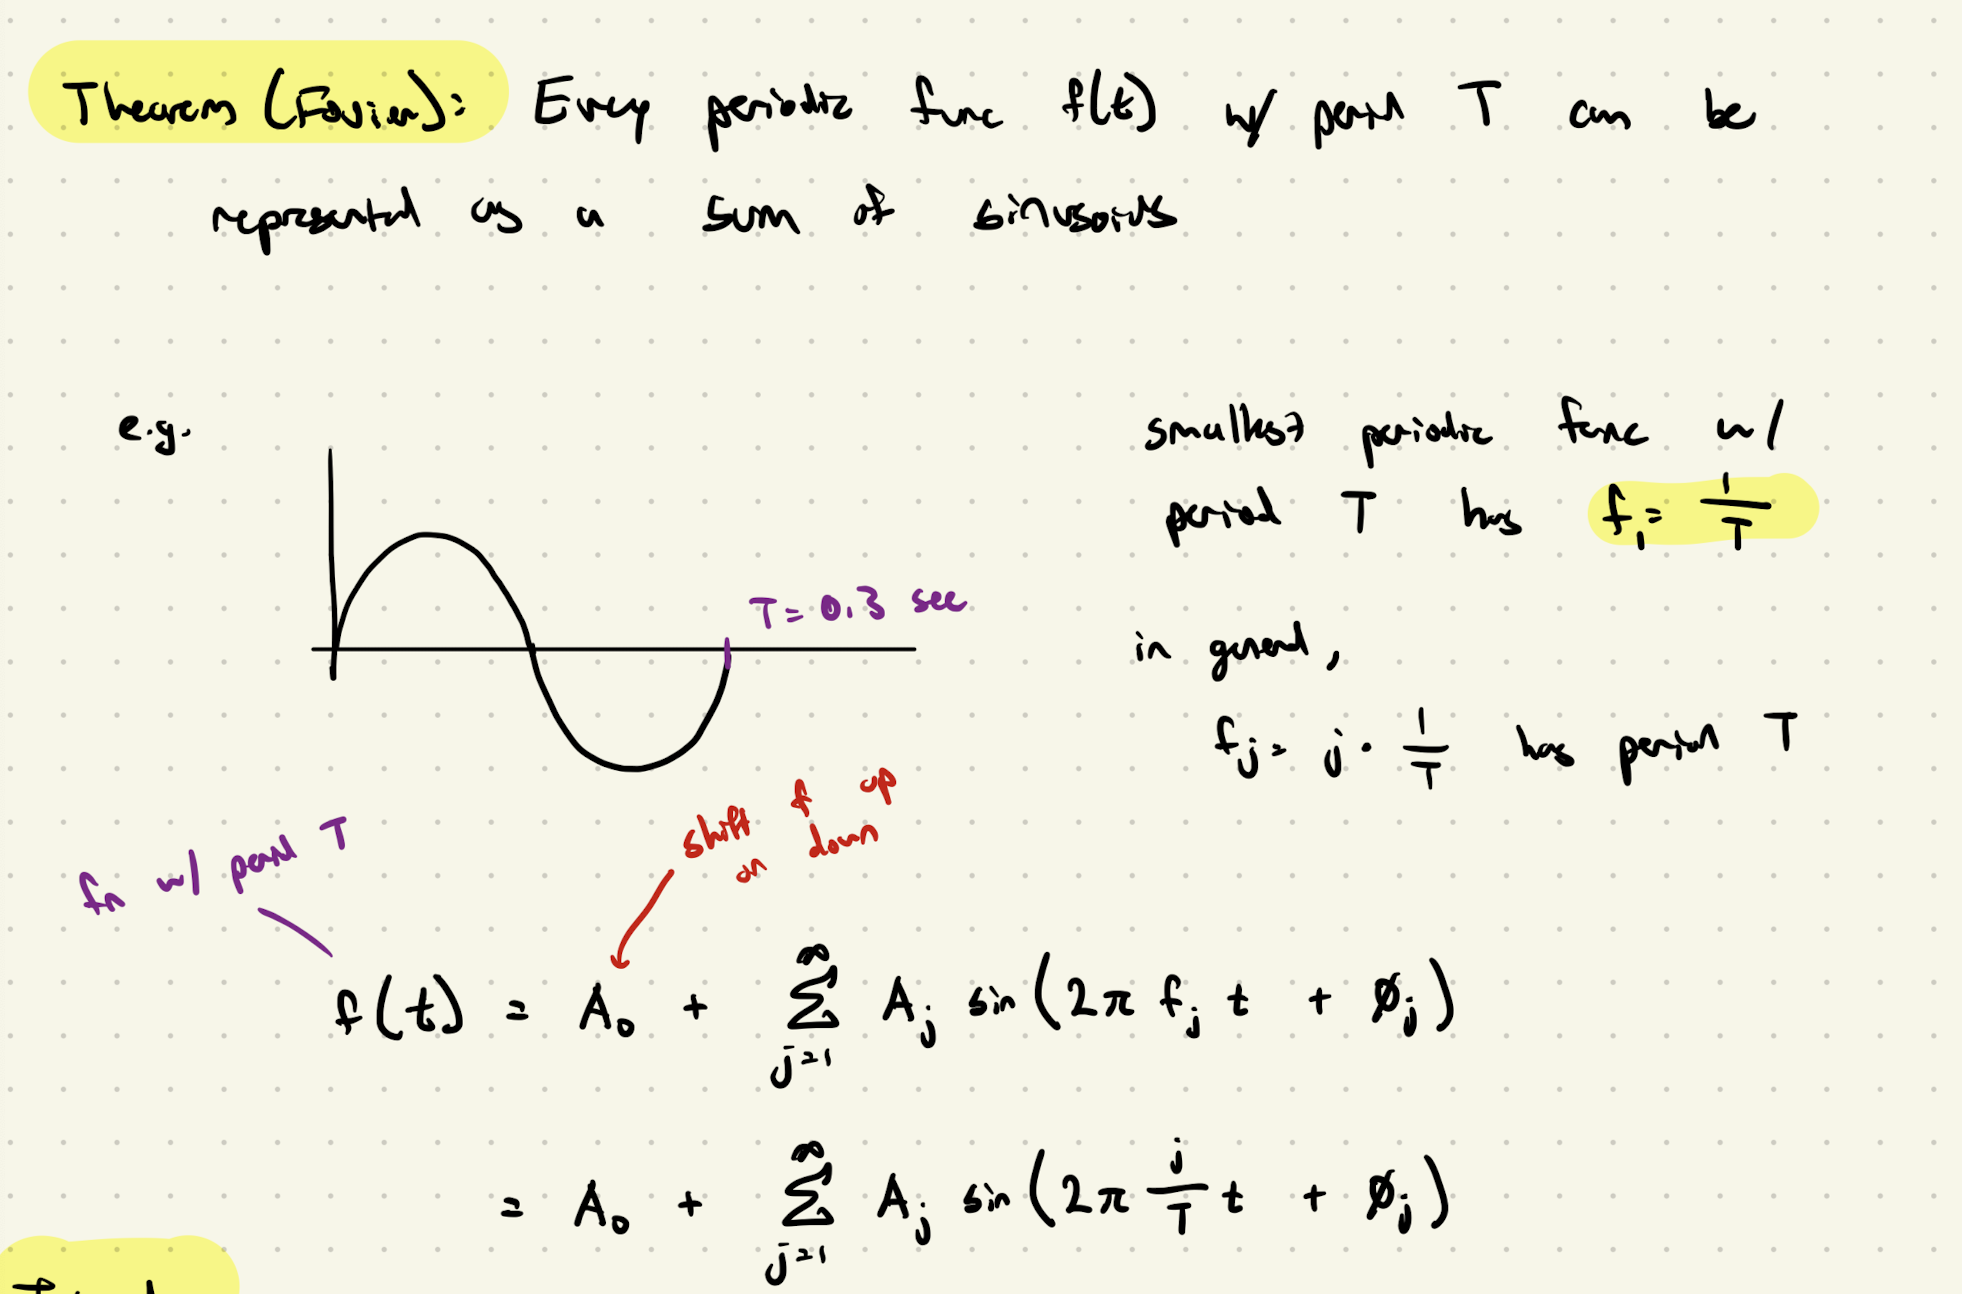 Theorem (Fourier): Every periodic func f(t) w/ period T can be
represented as a sum of sinusoids
e.g.
T = 0.3 sec
smallest periodic func w/
period T has f₁ = 1/T
in general,
fⱼ = j · 1/T has period T
fn w/ period T
shift f up
or down
f(t) = A₀ + ∑_{j=1}^{∞} Aⱼ sin(2π fⱼ t + øⱼ)
= A₀ + ∑_{j=1}^{∞} Aⱼ sin(2π j/T t + øⱼ)